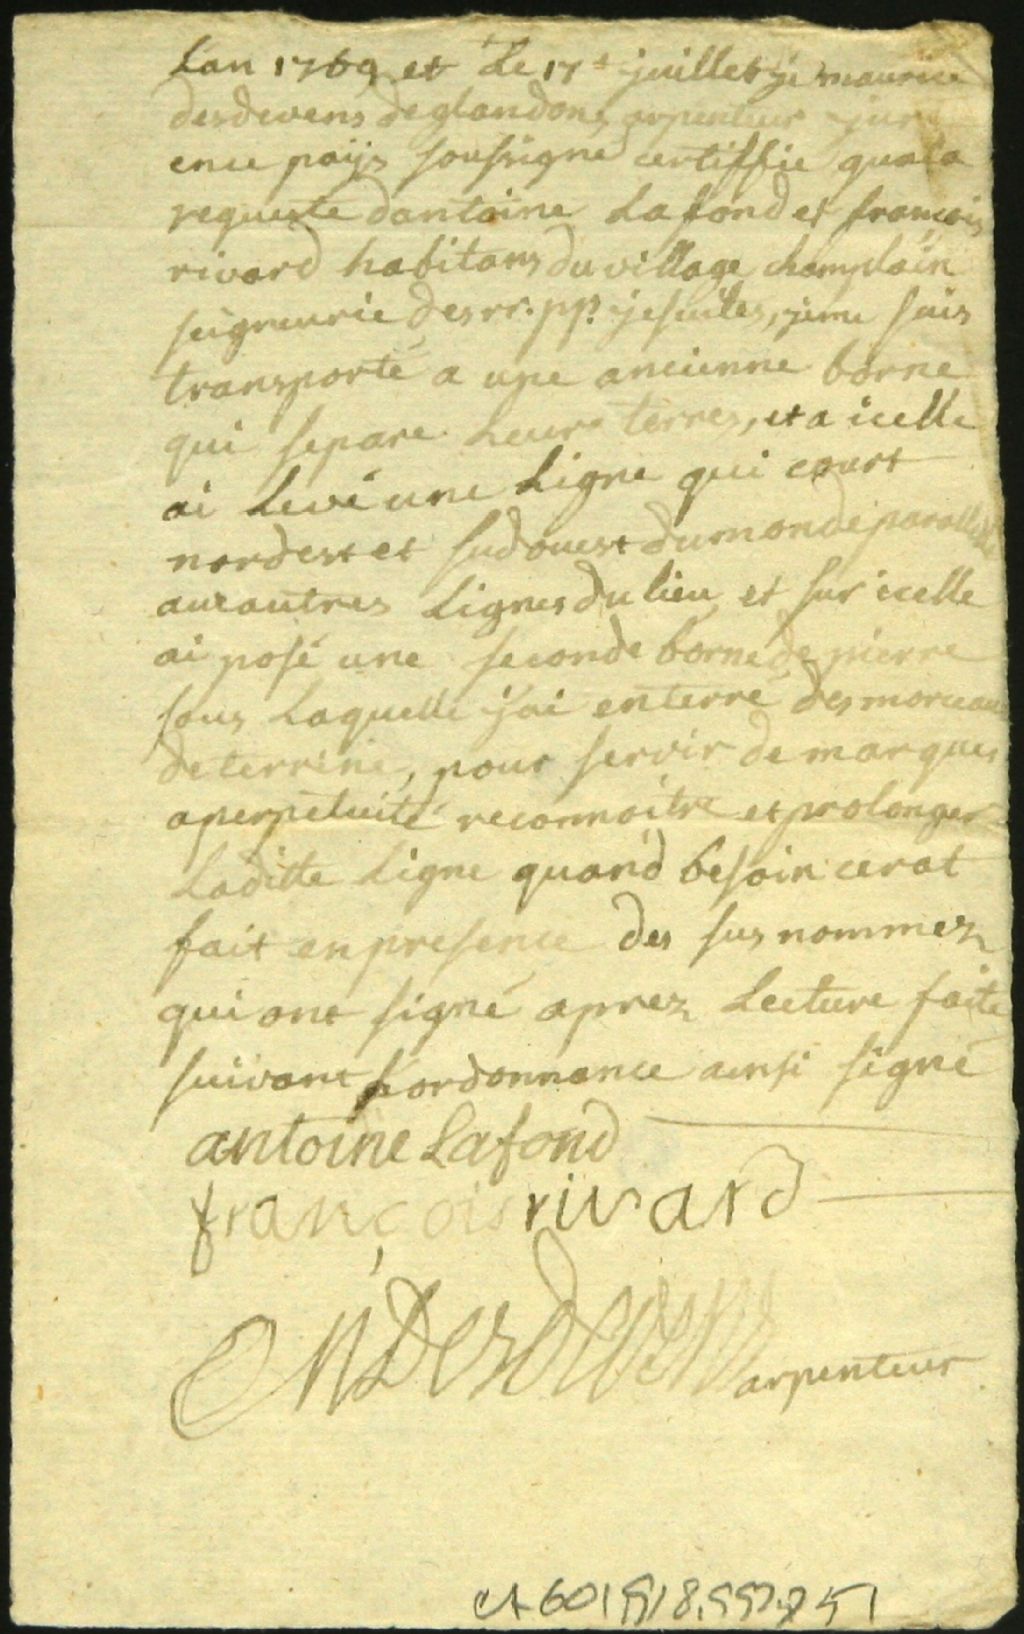 Lan 1769 et Le 17e juillet je maurice
desdevens deglandons arpenteur juré
ence païjs soussigné certiffie qua la
requeste dantoine Lafond et francois
rivard habitans du village champlain
seigneurie des rr. pp. jesuites, jeme suis
transporté a une ancienne borne
qui separe Leurs terres, et a icelle
ai Levé une Ligne qui court
nordest et sudouest du monde paralelle
aux autres Lignes du lieu et sur icelle
ai posé une seconde borne de pierre
sous Laquelle j'ai enterré des morceaux
de terrine, pour servir de marques
a perpetuité reconnoitre et prolonger
Laditte Ligne quand besoin cerat
fait en presence des sus nommez
qui ont signé aprez Lecture faite
suivant Lordonnance ainsi signé
antoine Lafond
françois rivard
Desdevens arpenteur